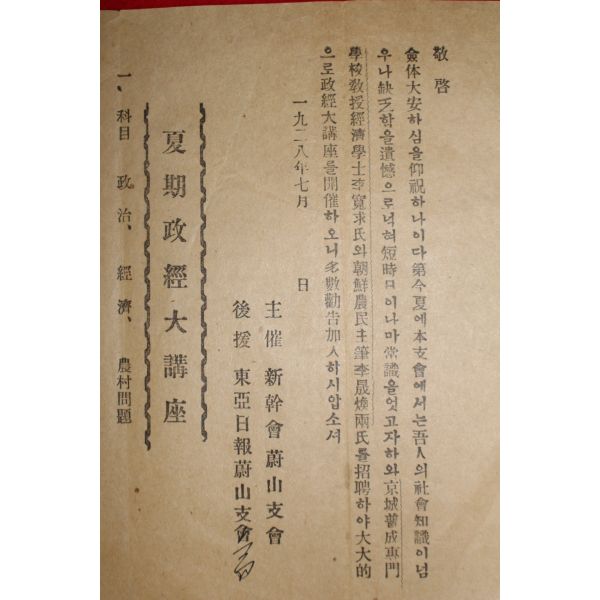 敬啓
僉体大安하심을仰祝하나이다第今夏에本支會에서는吾人의社會知識이넘
우나缺乏함을遺憾으로녁혀短時日이나마常識을엇고자하와京城普成專門
學校敎授經濟學士李寬求氏와朝鮮農民主筆李晟煥兩氏를招聘하야大大的
으로政經大講座를開催하오니多數勸告加入하시압소셔
一九二八年七月 日
主催 新幹會蔚山支會
後援 東亞日報蔚山支會
夏期政經大講座
一、科目 政治、經濟、農村問題